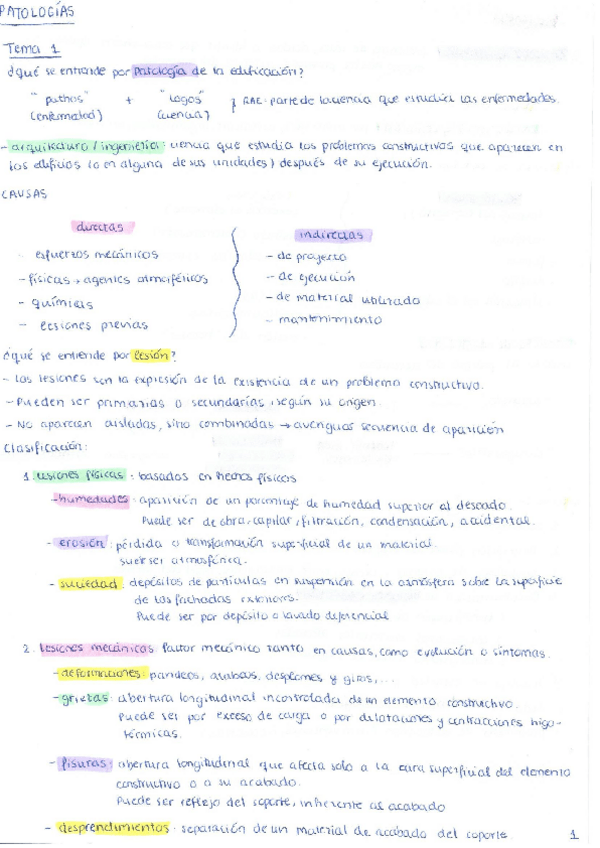 PATOLOGÍAS
Tema 1
¿Qué se entiende por patología de la edificación?
"pathos" + "logos" } RAE: parte de la ciencia que estudia las enfermedades.
(enfermedad) (ciencia)
- arquitectura / ingeniería: ciencia que estudia los problemas constructivos que aparecen en
los edificios (o en alguna de sus unidades) después de su ejecución.
CAUSAS
directas
- esfuerzos mecánicos
- físicas → agentes atmosféricos
- químicas
- lesiones previas
indirectas
- de proyecto
- de ejecución
- de material utilizado
- mantenimiento
¿Qué se entiende por lesión?
- Las lesiones son la expresión de la existencia de un problema constructivo.
- Pueden ser primarias o secundarias, según su origen
- No aparecen aisladas, sino combinadas → averiguar secuencia de aparición
Clasificación:
1. Lesiones físicas: basados en hechos físicos
- humedades: aparición de un porcentaje de humedad superior al deseado.
Puede ser de obra, capilar, filtración, condensación, accidental.
- erosión: pérdida o transformación superficial de un material.
suele ser atmosférica.
- suciedad: depósitos de partículas en suspensión en la atmósfera sobre la superficie
de las fachadas exteriores.
Puede ser por depósito o lavado diferencial
2. Lesiones mecánicas: factor mecánico tanto en causas, como evolución o síntomas.
- deformaciones: pandeos, alabeos, desplomes y giros,...
- grietas: abertura longitudinal incontrolada de un elemento constructivo.
Puede ser por exceso de carga o por dilataciones y contracciones higo-
térmicas.
- fisuras: abertura longitudinal que afecta solo a la cara superficial del elemento
constructivo o a su acabado.
Puede ser reflejo del soporte, inherente al acabado
- desprendimientos: separación de un material de acabado del soporte
1